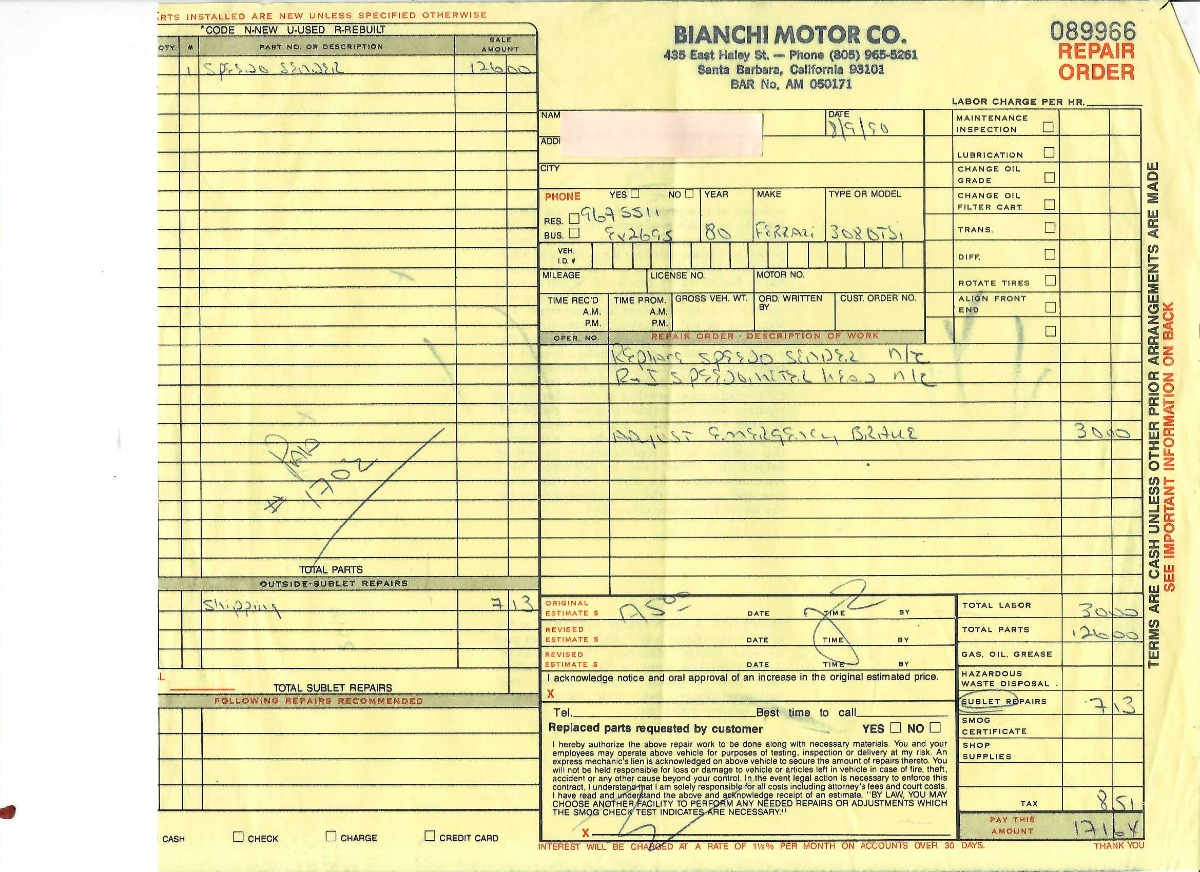 ARTS INSTALLED ARE NEW UNLESS SPECIFIED OTHERWISE
*CODE N-NEW U-USED R-REBUILT
QTY # PART NO. OR DESCRIPTION SALE AMOUNT
1 SPEEDO SENDER 126 00
PAID
# 1702
TOTAL PARTS
OUTSIDE-SUBLET REPAIRS
Shipping 7 13
L
TOTAL SUBLET REPAIRS
FOLLOWING REPAIRS RECOMMENDED
CASH CHECK CHARGE CREDIT CARD
BIANCHI MOTOR CO.
435 East Haley St. — Phone (805) 965-5261
Santa Barbara, California 93101
BAR No. AM 050171
089966
REPAIR
ORDER
LABOR CHARGE PER HR.
NAM
DATE
8/9/90
ADDI
CITY
PHONE YES NO YEAR MAKE TYPE OR MODEL
RES. 967 5511
BUS. Ex2695 80 FERRARI 308GTSi
VEH. I.D. #
MILEAGE LICENSE NO. MOTOR NO.
TIME REC'D A.M. P.M. TIME PROM. A.M. P.M. GROSS VEH. WT. ORD. WRITTEN BY CUST. ORDER NO.
OPER. NO. REPAIR ORDER - DESCRIPTION OF WORK
MAINTENANCE INSPECTION
LUBRICATION
CHANGE OIL GRADE
CHANGE OIL FILTER CART.
TRANS.
DIFF.
ROTATE TIRES
ALIGN FRONT END
REPLACE SPEEDO SENDER n/c
R+I SPEEDOMETER HEAD n/c
ADJUST EMERGENCY BRAKE 30 00
ORIGINAL ESTIMATE $ DATE TIME BY
REVISED ESTIMATE $ DATE TIME BY
REVISED ESTIMATE $ DATE TIME BY
I acknowledge notice and oral approval of an increase in the original estimated price.
X
Tel. Best time to call
Replaced parts requested by customer YES NO
I hereby authorize the above repair work to be done along with necessary materials. You and your
employees may operate above vehicle for purposes of testing, inspection or delivery at my risk. An
express mechanic's lien is acknowledged on above vehicle to secure the amount of repairs thereto. You
will not be held responsible for loss or damage to vehicle or articles left in vehicle in case of fire, theft,
accident or any other cause beyond your control. In the event legal action is necessary to enforce this
contract, I understand that I am solely responsible for all costs including attorney's fees and court costs.
I have read and understand the above and acknowledge receipt of an estimate. "BY LAW, YOU MAY
CHOOSE ANOTHER FACILITY TO PERFORM ANY NEEDED REPAIRS OR ADJUSTMENTS WHICH
THE SMOG CHECK TEST INDICATES ARE NECESSARY."
X
INTEREST WILL BE CHARGED AT A RATE OF 1½% PER MONTH ON ACCOUNTS OVER 30 DAYS.
TOTAL LABOR 30 00
TOTAL PARTS 126 00
GAS, OIL, GREASE
HAZARDOUS WASTE DISPOSAL
SUBLET REPAIRS 7 13
SMOG CERTIFICATE
SHOP SUPPLIES
TAX 8 51
PAY THIS AMOUNT 171 64
THANK YOU
TERMS ARE CASH UNLESS OTHER PRIOR ARRANGEMENTS ARE MADE
SEE IMPORTANT INFORMATION ON BACK